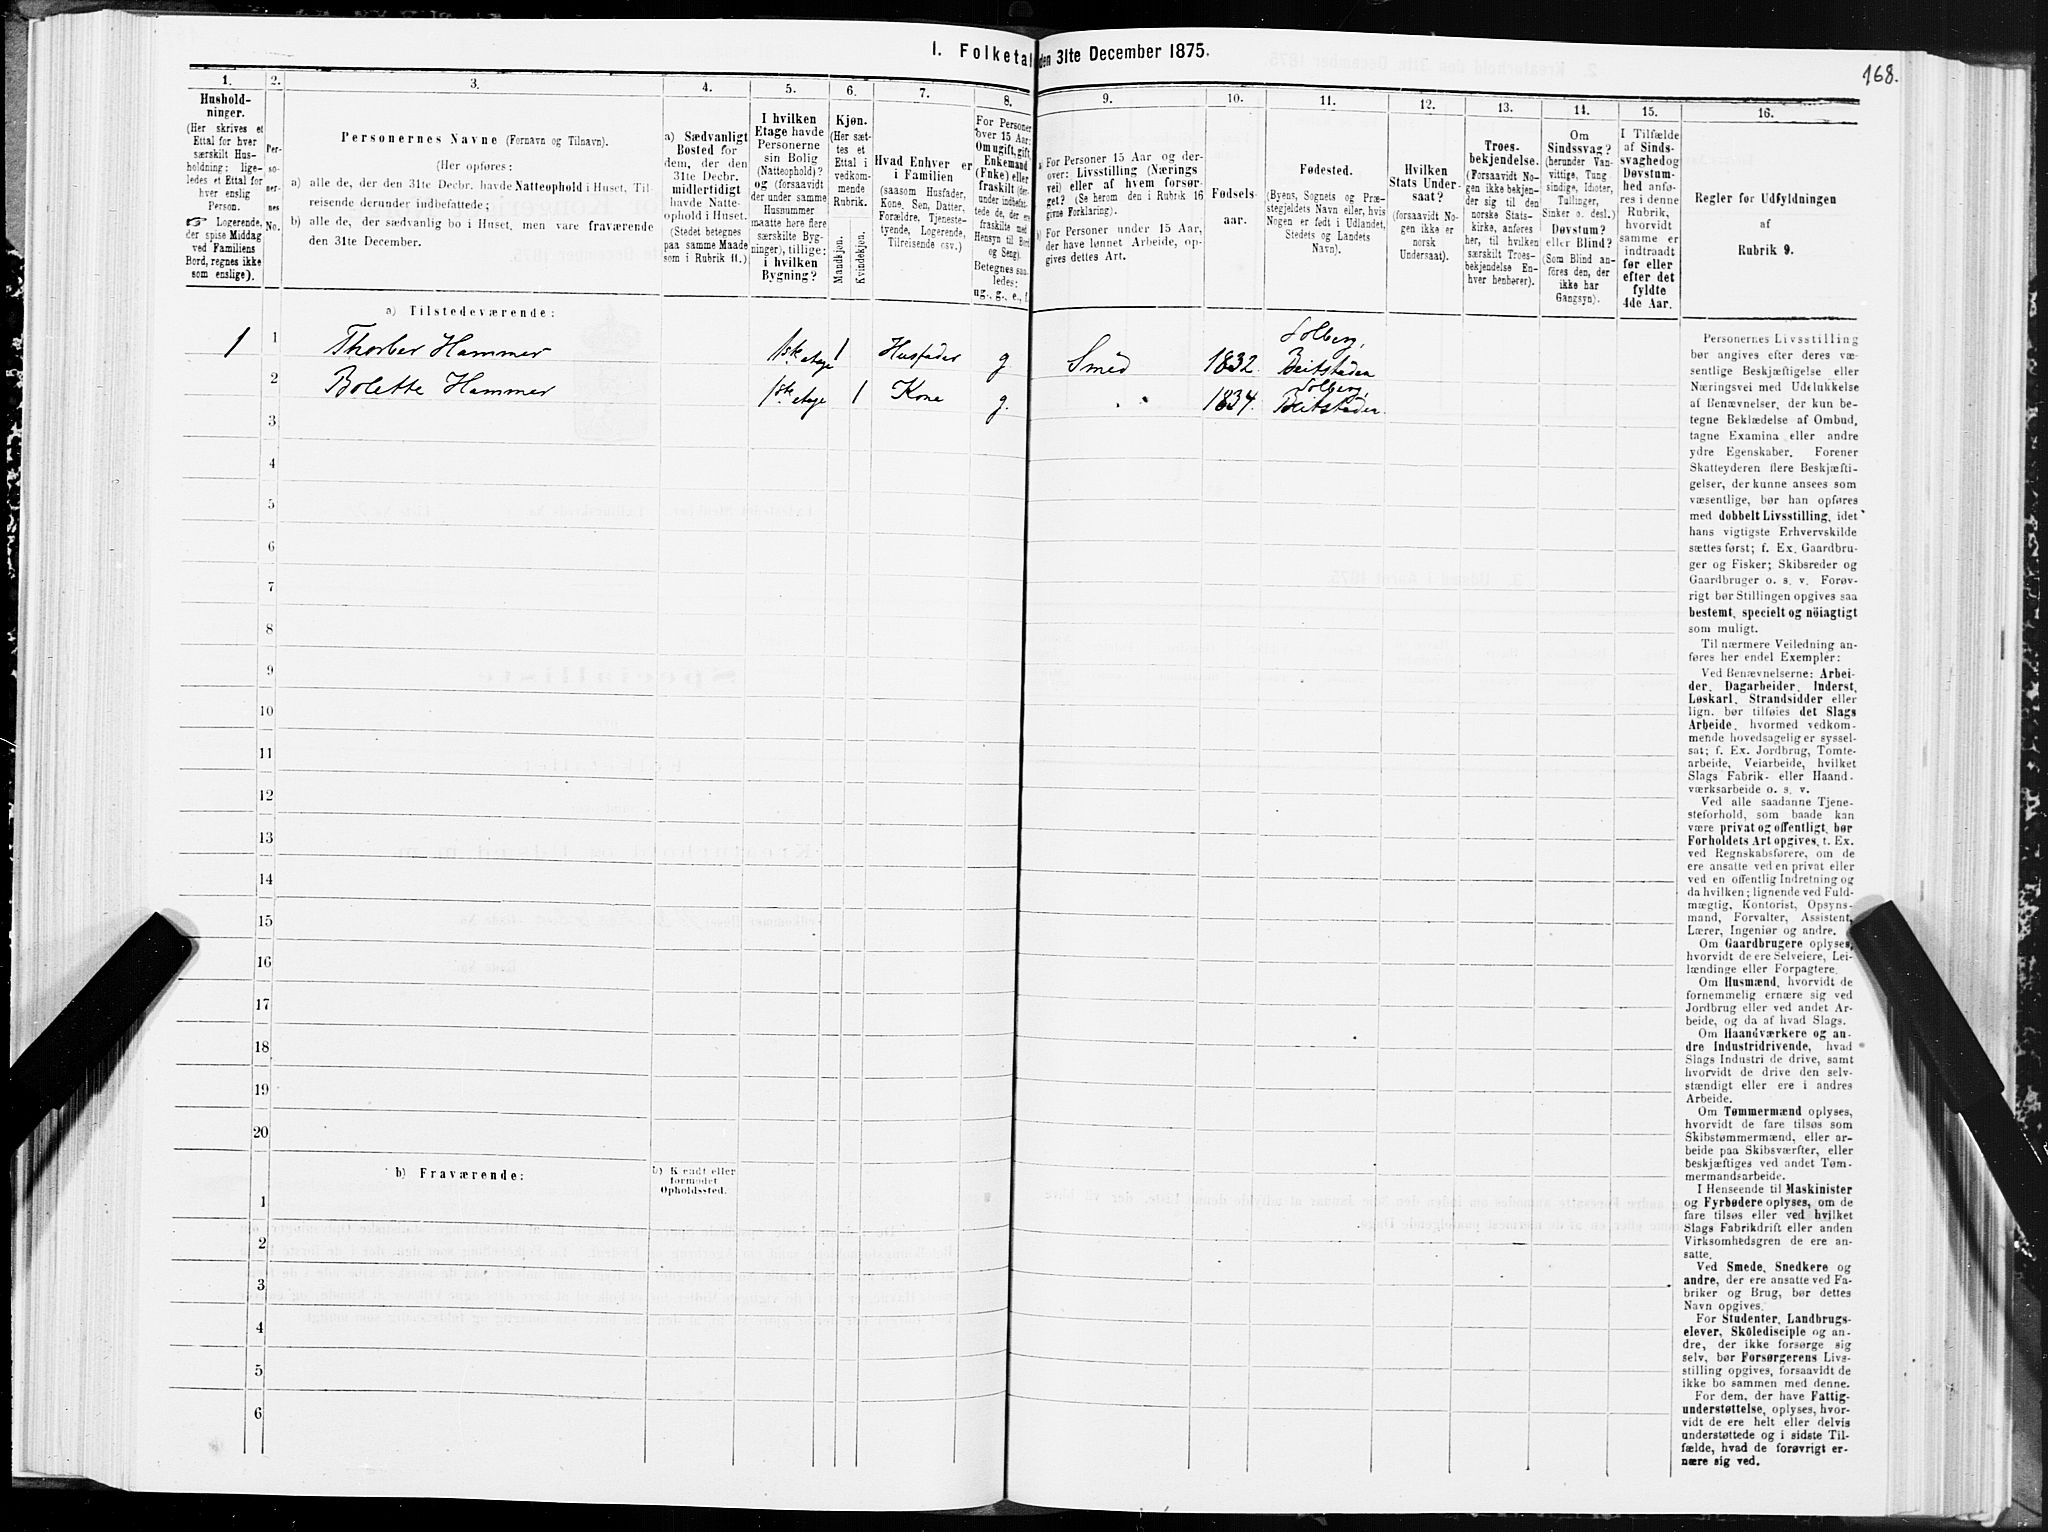 I. Folketal den 31te December 1875.
168.
1.
Hushold-
ninger.
(Her skrives et
Ettal for hver
særskilt Hus-
holdning; lige-
ledes et Ettal for
hver enslig
Person.
☞ Logerende,
der spise Middag
ved Familiens
Bord, regnes ikke
som enslige).
2.
Per-
so-
ner-
nes
No.
3.
Personernes Navne (Fornavn og Tilnavn).
(Her opføres:
a) alle de, der den 31te Decbr. havde Natteophold i Huset, Til-
reisende derunder indbefattede;
b) alle de, der sædvanlig bo i Huset, men vare fraværende
den 31te December.
4.
a) Sædvanligt
Bosted for
dem, der den
31te Decbr.
midlertidigt
havde Natte-
ophold i Huset.
(Stedet betegnes
paa samme Maade
som i Rubrik 11.)
5.
I hvilken
Etage havde
Personerne
sin Bolig
(Natteophold)?
og (forsaavidt
der under samme
Husnummer
maatte høre flere
særskilte Byg-
ninger), tillige:
i hvilken
Bygning?
6.
Kjøn.
(Her sæt-
tes et
Ettal i
vedkom-
mende
Rubrik.
Mandkjøn.
Kvindekjøn.
7.
Hvad Enhver er
i Familien
(saasom Husfader,
Kone, Søn, Datter,
Forældre, Tjeneste-
tyende, Logerende,
Tilreisende osv.)
8.
For Personer
over 15 Aar:
Om ugift, gift,
Enkemand
(Enke) eller
fraskilt (der-
under indbefat-
tede de, der ere
fraskilte med
Hensyn til Bord
og Seng).
Betegnes saa-
ledes:
ug., g., e., f.
9.
a) For Personer 15 Aar og der-
over: Livsstilling (Nærings
vei) eller af hvem forsør-
get? (Se herom den i Rubrik 16
givne Forklaring).
b) For Personer under 15 Aar,
der have lønnet Arbeide, op-
gives dettes Art.
10.
Fødsels-
aar.
11.
Fødested.
(Byens, Sognets og Præ-
stegjeldets Navn eller, hvis
Nogen er født i Udlandet,
Stedets og Landets
Navn).
12.
Hvilken
Stats Under-
saat?
(forsaavidt No-
gen ikke er
norsk
Undersaat).
13.
Troes-
bekjendelse.
(Forsaavidt No-
gen ikke bekjen-
der sig til den
norske Stats-
kirke, anføres
her, til hvilken
særskilt Troes-
bekjendelse En-
hver henhører).
14.
Om
Sindssvag?
(herunder Van-
vittige, Tung
sindige, Idioter,
Tullinger,
Sinker o. desl.)
Døvstum?
eller Blind?
(Som Blind an-
føres den, der
ikke har
Gangsyn).
15.
I Tilfælde
af Sinds-
svaghed og
Døvstum-
hed anfø-
res i denne
Rubrik,
hvorvidt
samme er
indtraadt
før eller
efter det
fyldte
4de Aar.
16.
Regler før Udfyldningen
af
Rubrik 9.
a) Tilstedeværende:
1 1 Thorber Hammer 1ste etage 1 Husfader g. Smed 1832. Solberg, Beitstaden
2 Bolette Hammer 1ste etage 1 Kone g. " 1834. Solberg, Beitstaden.
3
4
5
6
7
8
9
10
11
12
13
14
15
16
17
18
19
20
b) Fraværende:
b) Kjendt eller
formodet
Opholdssted.
1
2
3
4
5
6
Personernes Livsstilling
bør angives efter deres væ-
sentlige Beskjæftigelse eller
Næringsvei med Udelukkelse
af Benævnelser, der kun be-
tegne Beklædelse af Ombud,
tagne Examina eller andre
ydre Egenskaber. Forener
Skatteyderen flere Beskjæfti-
gelser, der kunne ansees som
væsentlige, bør han opføres
med dobbelt Livsstilling, idet
hans vigtigste Erhvervskilde
sættes først; f. Ex. Gaardbru-
ger og Fisker; Skibsreder og
Gaardbruger o. s. v. Forøv-
rigt bør Stillingen opgives saa
bestemt, specielt og nöiagtigt
som muligt.
Til nærmere Veiledning an-
føres her endel Exempler:
Ved Benævnelserne: Arbei-
der, Dagarbeider, Inderst,
Løskarl, Strandsidder eller
lign. bør tilføies det Slags
Arbeide, hvormed vedkom-
mende hovedsagelig er syssel-
sat; f. Ex. Jordbrug, Tomte-
arbeide, Veiarbeide, hvilket
Slags Fabrik- eller Haand-
værksarbeide o. s. v.
Ved alle saadanne Tjene-
steforhold, som baade kan
være privat og offentligt, bør
Forholdets Art opgives, t. Ex.
ved Regnskabsførere, om de
ere ansatte ved en privat eller
ved en offentlig Indretning og
da hvilken; lignende ved Fuld-
mægtig, Kontorist, Opsyns-
mand, Forvalter, Assistent,
Lærer, Ingeniør og andre.
Om Gaardbrugere oplyses,
hvorvidt de ere Selveiere, Lei-
lændinge eller Forpagtere.
Om Husmænd, hvorvidt de
fornemmelig ernære sig ved
Jordbrug eller ved andet Ar-
beide, og da af hvad Slags.
Om Haandværkere og an-
dre Industridrivende, hvad
Slags Industri de drive, samt
hvorvidt de drive den selv-
stændigt eller ere i andres
Arbeide.
Om Tømmermænd oplyses,
hvorvidt de fare tilsøs som
Skibstømmermænd, eller ar-
beide paa Skibsværfter, eller
beskjæftiges ved andet Tøm-
mermandsarbeide.
I Henseende til Maskinister
og Fyrbødere oplyses, om de
fare tilsøs eller ved hvilket
Slags Fabrikdrift eller anden
Virksomhedsgren de ere an-
satte.
Ved Smede, Snedkere og
andre, der ere ansatte ved Fa-
briker og Brug, bør dettes
Navn opgives.
For Studenter, Landbrugs-
elever, Skoledisciple og an-
dre, der ikke forsørge sig
selv, bør Forsørgerens Livs-
stilling opgives, forsaavidt de
ikke bo sammen med denne.
For dem, der have Fattig-
understøttelse, oplyses, hvor-
vidt de ere helt eller delvis
understøttede og i sidste Til-
fælde, hvad de forøvrigt er-
nære sig ved.